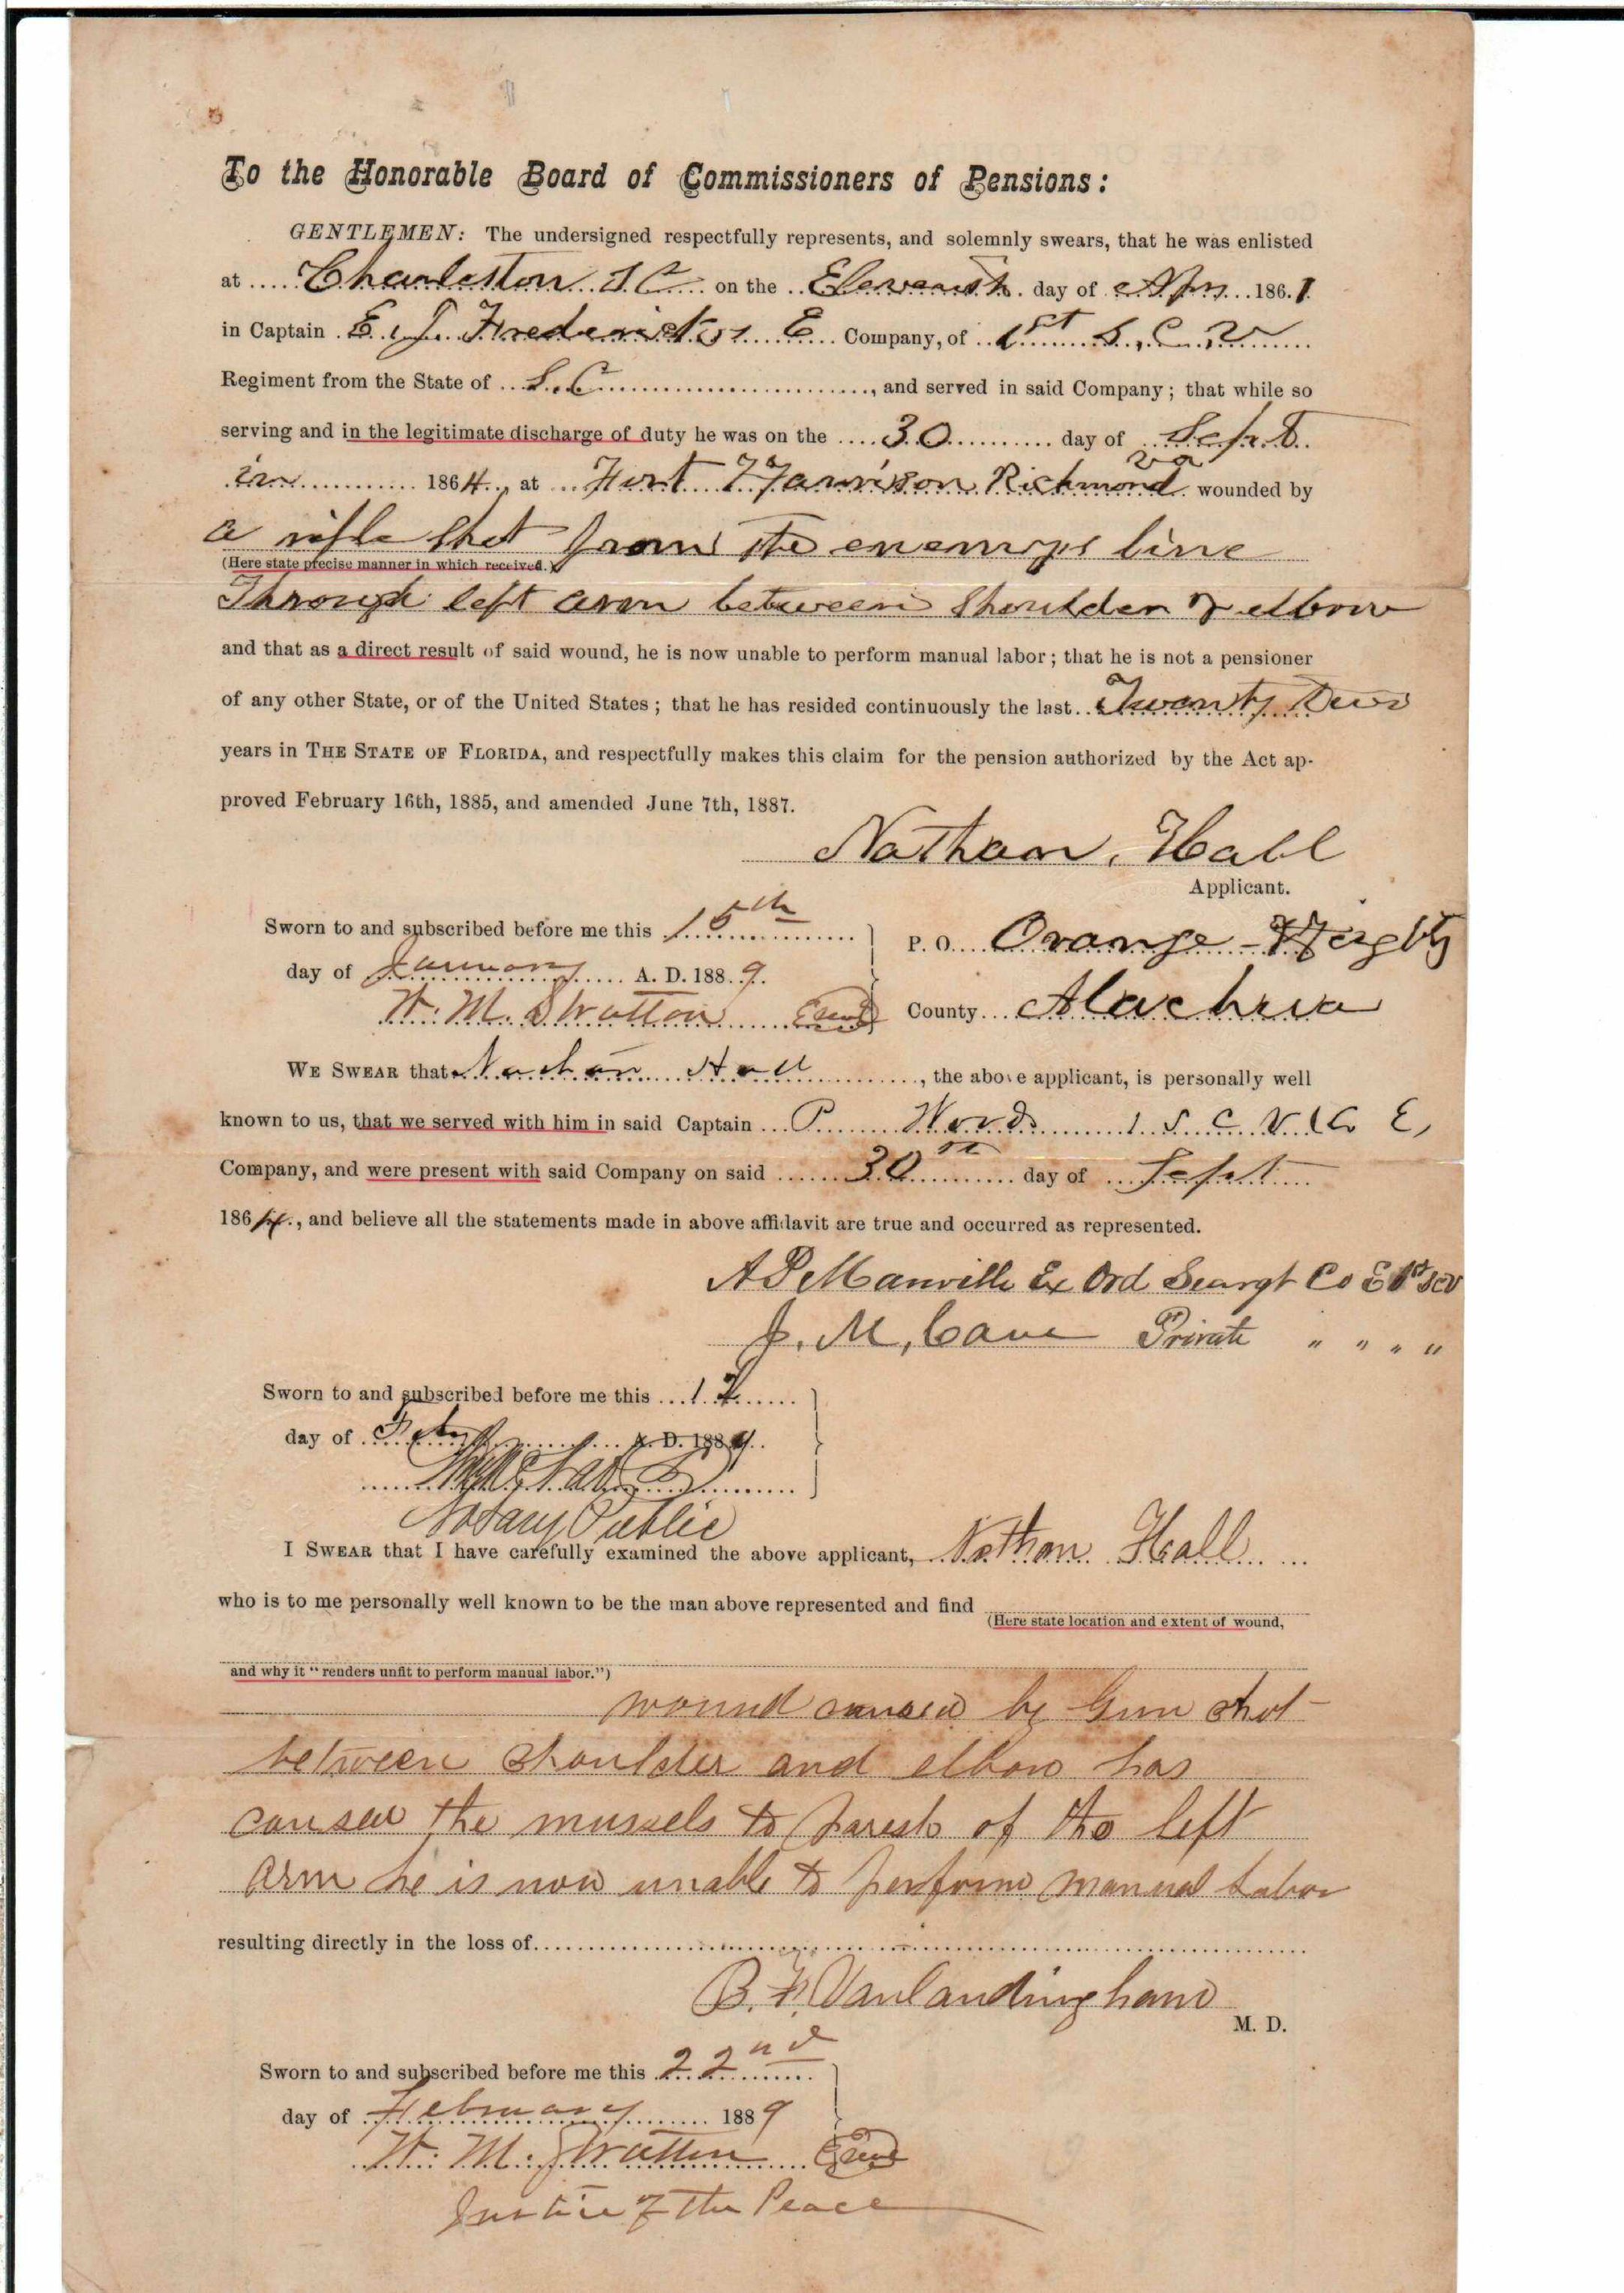 To the Honorable Board of Commissioners of Pensions:
GENTLEMEN: The undersigned respectfully represents, and solemnly swears, that he was enlisted
at Charleston S C on the Eleventh day of 1861
in Captain E. J. Fredericks E Company, of 1st S. C. V
Regiment from the State of S. C, and served in said Company; that while so
serving and in the legitimate discharge of duty he was on the 30 day of Sept.
in 1864, at Fort Harrison Richmond Va wounded by
a rifle shot from the enemys line
(Here state precise manner in which received.)
Through left arm between Shoulder & elbow
and that as a direct result of said wound, he is now unable to perform manual labor; that he is not a pensioner
of any other State, or of the United States; that he has resided continuously the last Twenty
years in THE STATE OF FLORIDA, and respectfully makes this claim for the pension authorized by the Act ap-
proved February 16th, 1885, and amended June 7th, 1887.
Nathan. Hall
Applicant.
Sworn to and subscribed before me this 15th
day of January A. D. 1889.
W. M. Stratton
P. O. Orange-Heights
County Alachua
WE SWEAR that Nathan Hall, the above applicant, is personally well
known to us, that we served with him in said Captain P Woods 1 S C V Co E,
Company, and were present with said Company on said 30th day of Sept
1864., and believe all the statements made in above affidavit are true and occurred as represented.
A P Manville Ex Ord Seargt Co E 1st SCV
J. M. Cave Private " " " "
Sworn to and subscribed before me this 12
day of Feby A. D. 1889.
Notary Public
I SWEAR that I have carefully examined the above applicant, Nathan Hall
who is to me personally well known to be the man above represented and find
(Here state location and extent of wound,
and why it "renders unfit to perform manual labor.")
wound caused by Gun shot
between shoulder and elbow has
caused the mussels to parish of the left
arm he is now unable to perform manual Labor
resulting directly in the loss of
B. F. Vanlandingham
M. D.
Sworn to and subscribed before me this 22nd
day of February 1889
W. M. Stratton
Justice of the Peace